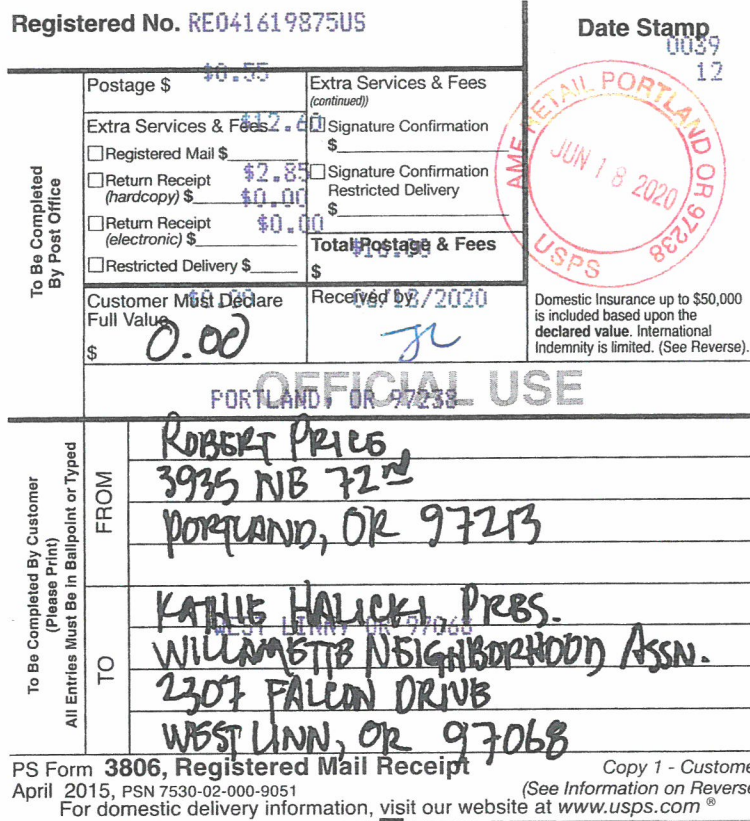 Registered No. RE041619875US
Date Stamp
0039
12
To Be Completed
By Post Office
Postage $ $0.55
Extra Services & Fees $12.60
Registered Mail $
Return Receipt $2.85
(hardcopy) $ $0.00
Return Receipt $0.00
(electronic) $
Restricted Delivery $
Extra Services & Fees
(continued))
Signature Confirmation
$
Signature Confirmation
Restricted Delivery
$
Total Postage & Fees
$
AMF RETAIL PORTLAND OR 97238
JUN 18 2020
USPS
Customer Must Declare
Full Value
$ 0.00
Received by
/2020
Domestic Insurance up to $50,000
is included based upon the
declared value. International
Indemnity is limited. (See Reverse).
OFFICIAL USE
PORTLAND, OR 97238
To Be Completed By Customer
(Please Print)
All Entries Must Be in Ballpoint or Typed
FROM
ROBERT PRICE
3935 NE 72nd
PORTLAND, OR 97213
TO
KATHIE HALICKI, PRES.
WEST LINN, OR 97068
WILLAMETTE NEIGHBORHOOD ASSN.
2307 FALCON DRIVE
WEST LINN, OR 97068
PS Form 3806, Registered Mail Receipt
Copy 1 - Custome
April 2015, PSN 7530-02-000-9051
(See Information on Reverse
For domestic delivery information, visit our website at www.usps.com ®